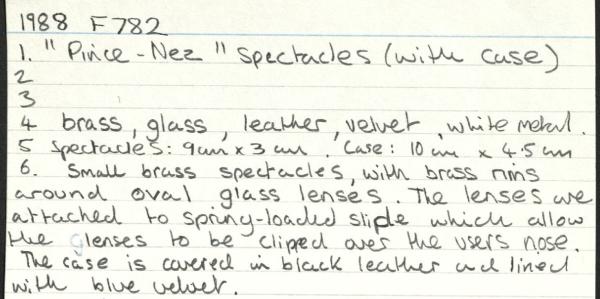 1988 F782
1. "Pince-Nez" Spectacles (with case)
2
3
4 brass, glass, leather, velvet, white metal.
5 Spectacles: 9cm x 3 cm. Case: 10 cm x 4.5 cm
6. Small brass spectacles, with brass rims
around oval glass lenses. The lenses are
attached to spring-loaded slide which allow
the lenses to be cliped over the users nose.
The case is covered in black leather and lined
with blue velvet.